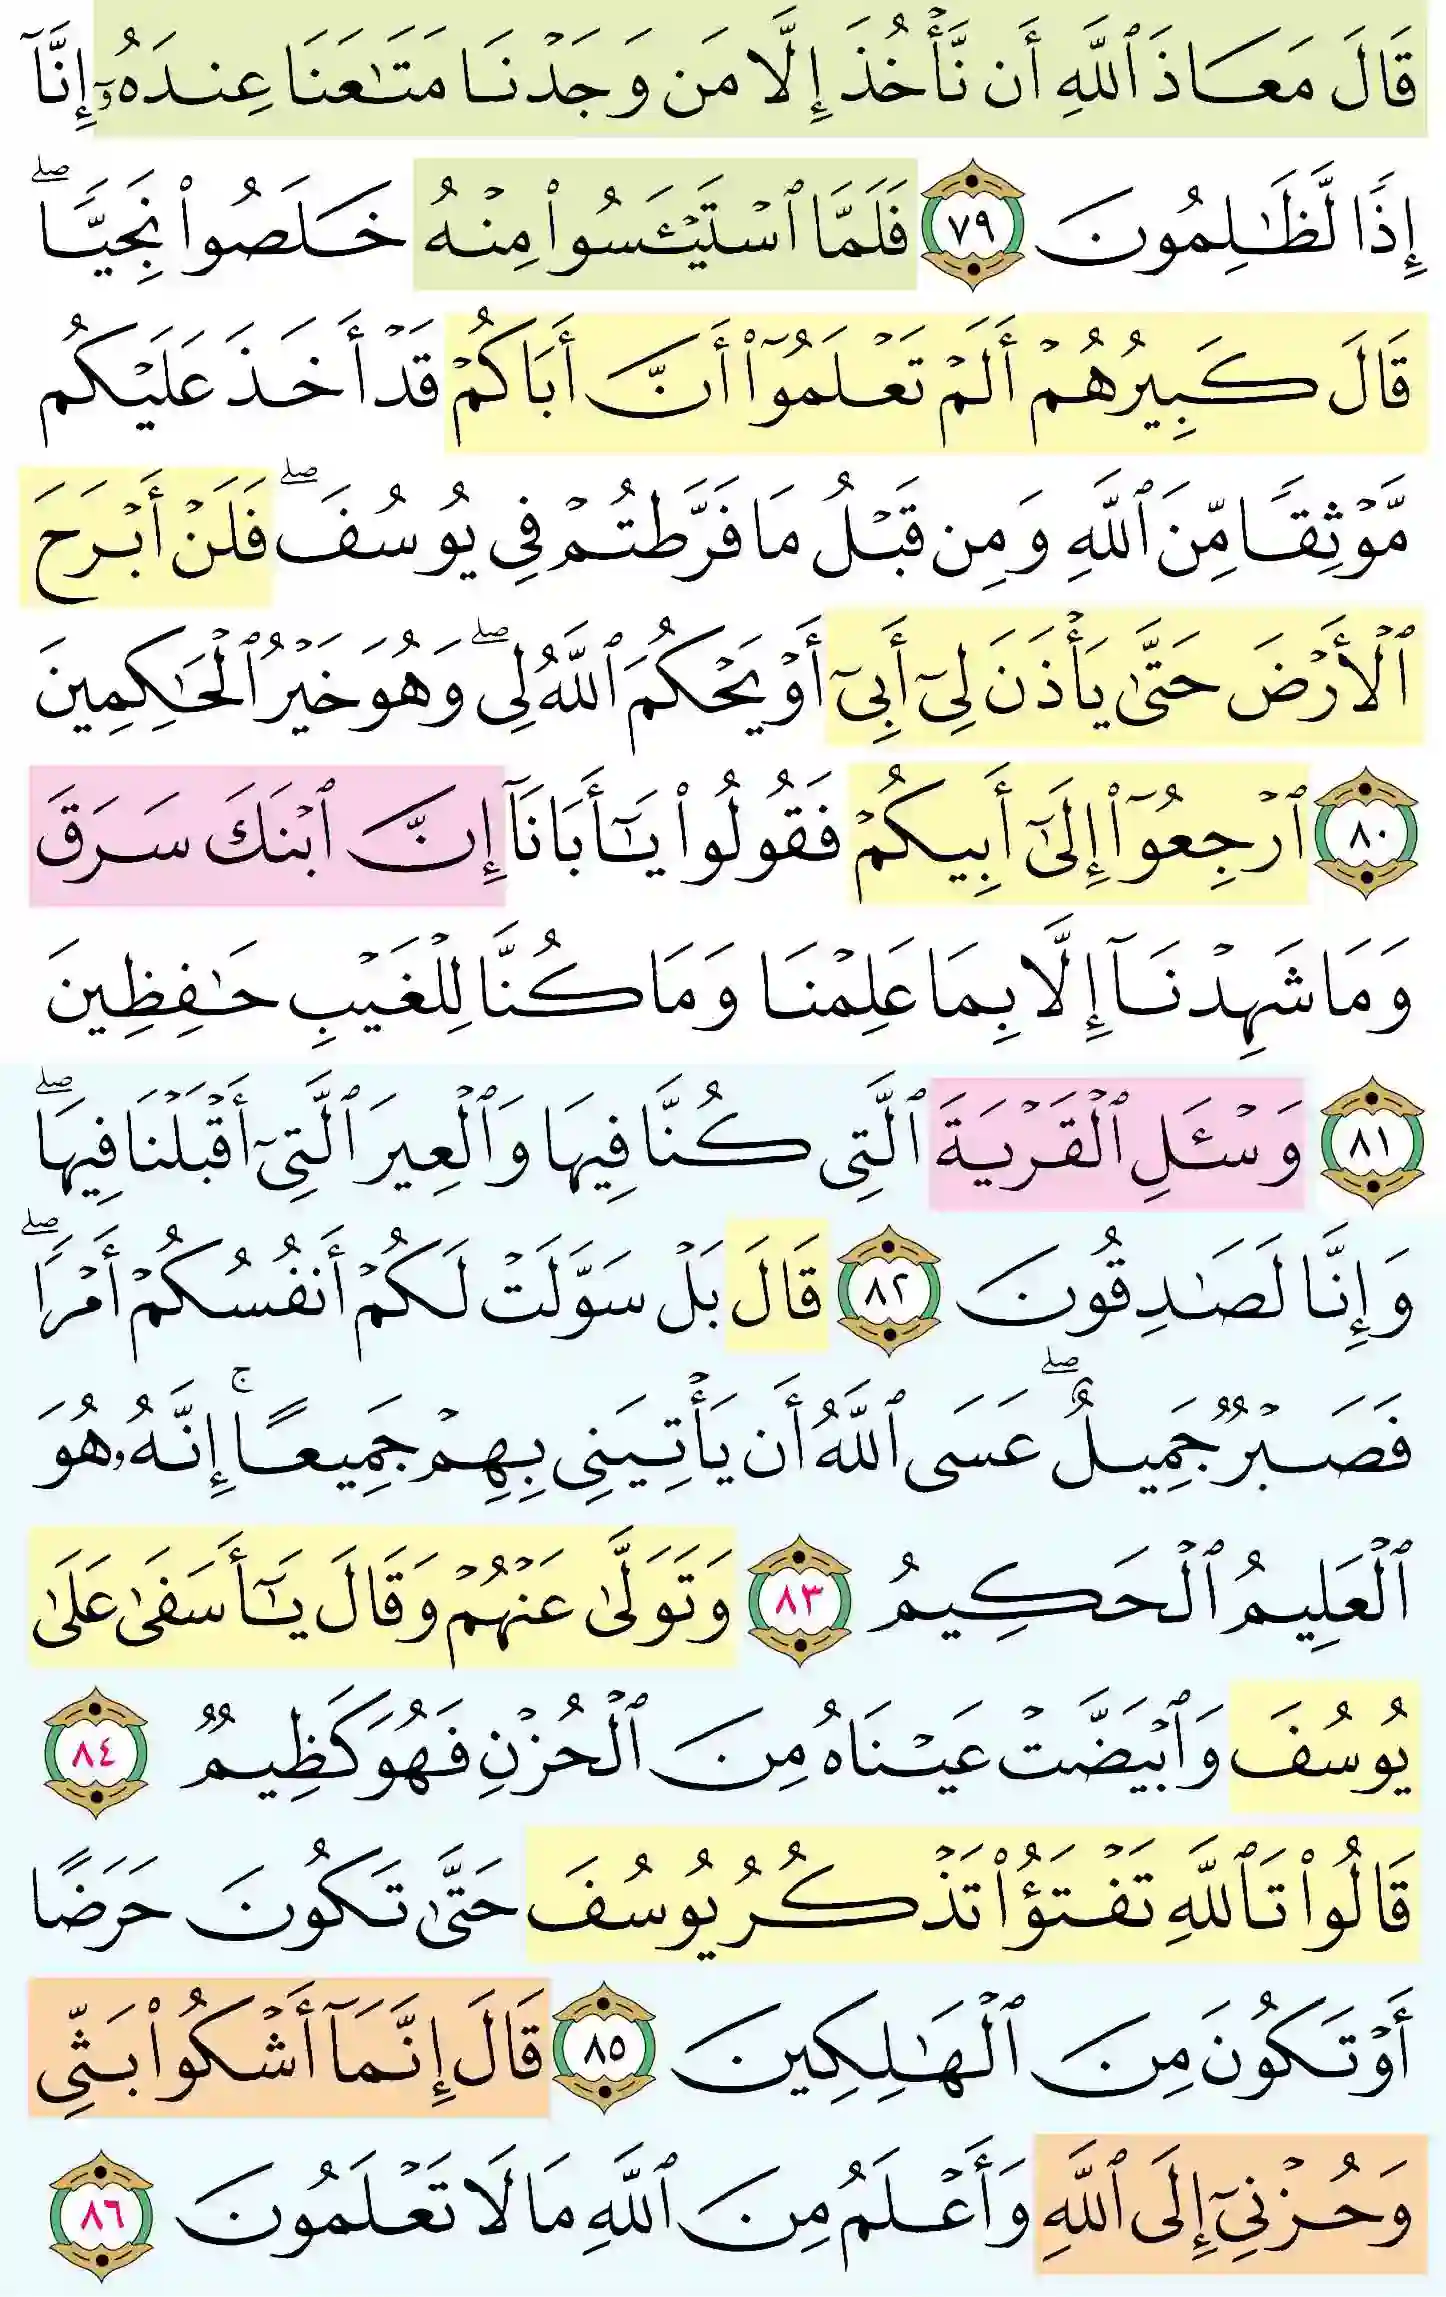 قَالَ مَعَاذَ ٱللَّهِ أَن نَّأۡخُذَ إِلَّا مَن وَجَدۡنَا مَتَٰعَنَا عِندَهُۥٓ إِنَّآ
إِذٗا لَّظَٰلِمُونَ ٧٩ فَلَمَّا ٱسۡتَيۡـَٔسُواْ مِنۡهُ خَلَصُواْ نَجِيّٗاۖ
قَالَ كَبِيرُهُمۡ أَلَمۡ تَعۡلَمُوٓاْ أَنَّ أَبَاكُمۡ قَدۡ أَخَذَ عَلَيۡكُم
مَّوۡثِقٗا مِّنَ ٱللَّهِ وَمِن قَبۡلُ مَا فَرَّطتُمۡ فِي يُوسُفَۖ فَلَنۡ أَبۡرَحَ
ٱلۡأَرۡضَ حَتَّىٰ يَأۡذَنَ لِيٓ أَبِيٓ أَوۡ يَحۡكُمَ ٱللَّهُ لِيۖ وَهُوَ خَيۡرُ ٱلۡحَٰكِمِينَ
٨٠ ٱرۡجِعُوٓاْ إِلَىٰٓ أَبِيكُمۡ فَقُولُواْ يَٰٓأَبَانَآ إِنَّ ٱبۡنَكَ سَرَقَ
وَمَا شَهِدۡنَآ إِلَّا بِمَا عَلِمۡنَا وَمَا كُنَّا لِلۡغَيۡبِ حَٰفِظِينَ
٨١ وَسۡـَٔلِ ٱلۡقَرۡيَةَ ٱلَّتِي كُنَّا فِيهَا وَٱلۡعِيرَ ٱلَّتِيٓ أَقۡبَلۡنَا فِيهَاۖ
وَإِنَّا لَصَٰدِقُونَ ٨٢ قَالَ بَلۡ سَوَّلَتۡ لَكُمۡ أَنفُسُكُمۡ أَمۡرٗاۖ
فَصَبۡرٞ جَمِيلٌۖ عَسَى ٱللَّهُ أَن يَأۡتِيَنِي بِهِمۡ جَمِيعًاۚ إِنَّهُۥ هُوَ
ٱلۡعَلِيمُ ٱلۡحَكِيمُ ٨٣ وَتَوَلَّىٰ عَنۡهُمۡ وَقَالَ يَٰٓأَسَفَىٰ عَلَىٰ
يُوسُفَ وَٱبۡيَضَّتۡ عَيۡنَاهُ مِنَ ٱلۡحُزۡنِ فَهُوَ كَظِيمٞ ٨٤
قَالُواْ تَٱللَّهِ تَفۡتَؤُاْ تَذۡكُرُ يُوسُفَ حَتَّىٰ تَكُونَ حَرَضًا
أَوۡ تَكُونَ مِنَ ٱلۡهَٰلِكِينَ ٨٥ قَالَ إِنَّمَآ أَشۡكُواْ بَثِّي
وَحُزۡنِيٓ إِلَى ٱللَّهِ وَأَعۡلَمُ مِنَ ٱللَّهِ مَا لَا تَعۡلَمُونَ ٨٦